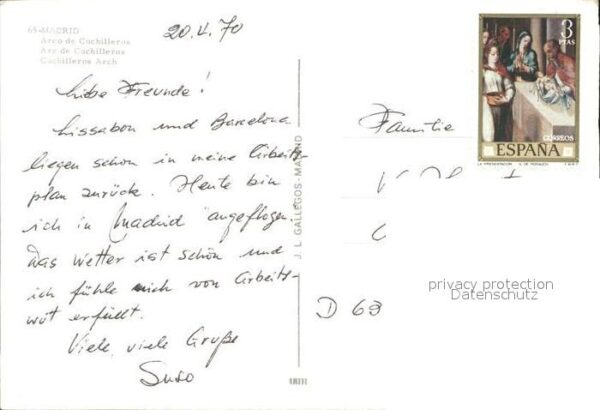 65-MADRID
Arco de Cuchilleros
Arc de Cuchilleros
Cuchilleros Arch
20.V.70
Liebe Freunde!
Lissabon und Barcelona
liegen schon in meine Arbeits-
plan zurück. Heute bin
ich in "Madrid" angeflogen.
Das Wetter ist schön und
ich fühle mich von Arbeits-
wut erfüllt.
Viele, viele Gruße
Suso
J. L. GALLEGOS-MADRID
3
PTAS
CORREOS
ESPAÑA
Familie
D 69
privacy protection
Datenschutz